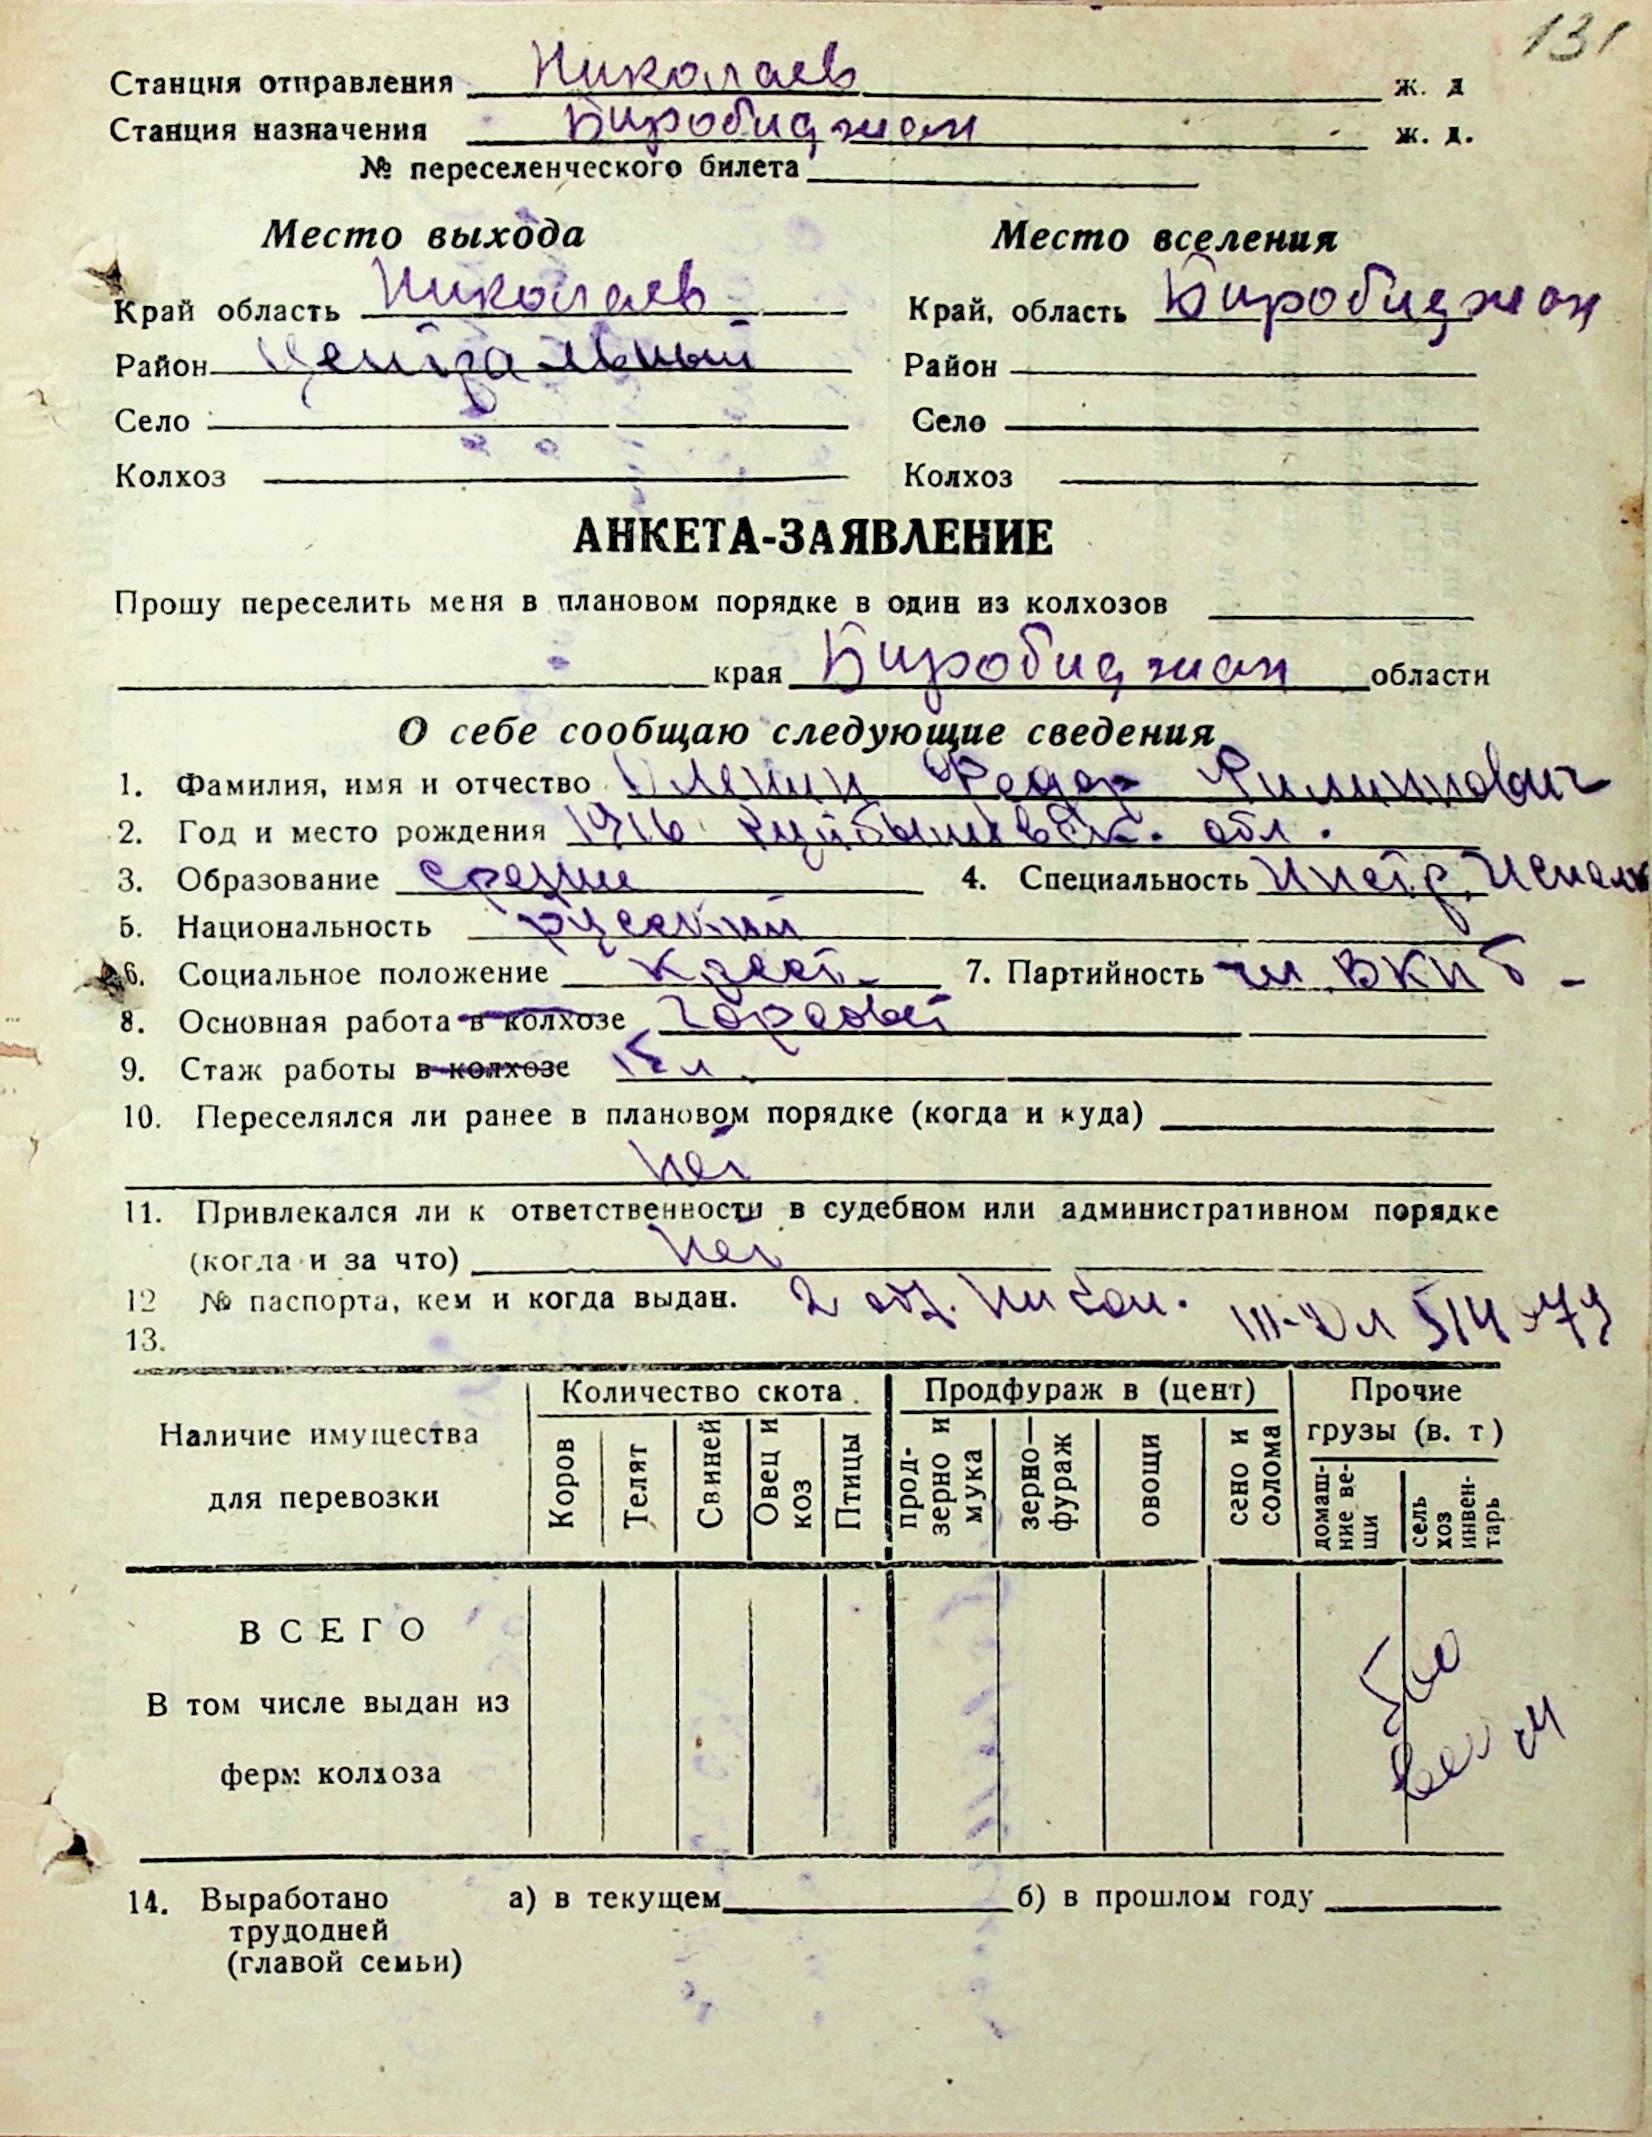 131
Станция отправления Николаев ж. д
Станция назначения Биробиджан ж. д.
№ переселенческого билета
Место выхода
Место вселения
Край область Николаев
Край, область Биробиджан
Район Центральный
Район
Село
Село
Колхоз
Колхоз
АНКЕТА-ЗАЯВЛЕНИЕ
Прошу переселить меня в плановом порядке в один из колхозов
края Биробиджан области
О себе сообщаю следующие сведения
1. Фамилия, имя и отчество Федор Филиппович
2. Год и место рождения 1916 Куйбышевск. обл.
3. Образование средни 4. Специальность
5. Национальность русский
6. Социальное положение крест. 7. Партийность чл ВКПб -
8. Основная работа в колхозе Горсовет
9. Стаж работы в колхозе
10. Переселялся ли ранее в плановом порядке (когда и куда)
Нет
11. Привлекался ли к ответственности в судебном или административном порядке
(когда и за что) Нет
12 № паспорта, кем и когда выдан. 2
13.
Наличие имущества
для перевозки
Количество скота
Коров
Телят
Свиней
Овец и
коз
Птицы
Продфураж в (цент)
прод-
зерно и
мука
зерно—
фураж
овощи
сено и
солома
Прочие
грузы (в. т)
домаш-
ние ве-
щи
сель
хоз
инвен-
тарь
ВСЕГО
В том числе выдан из
ферм колхоза
14. Выработано а) в текущем б) в прошлом году
трудодней
(главой семьи)